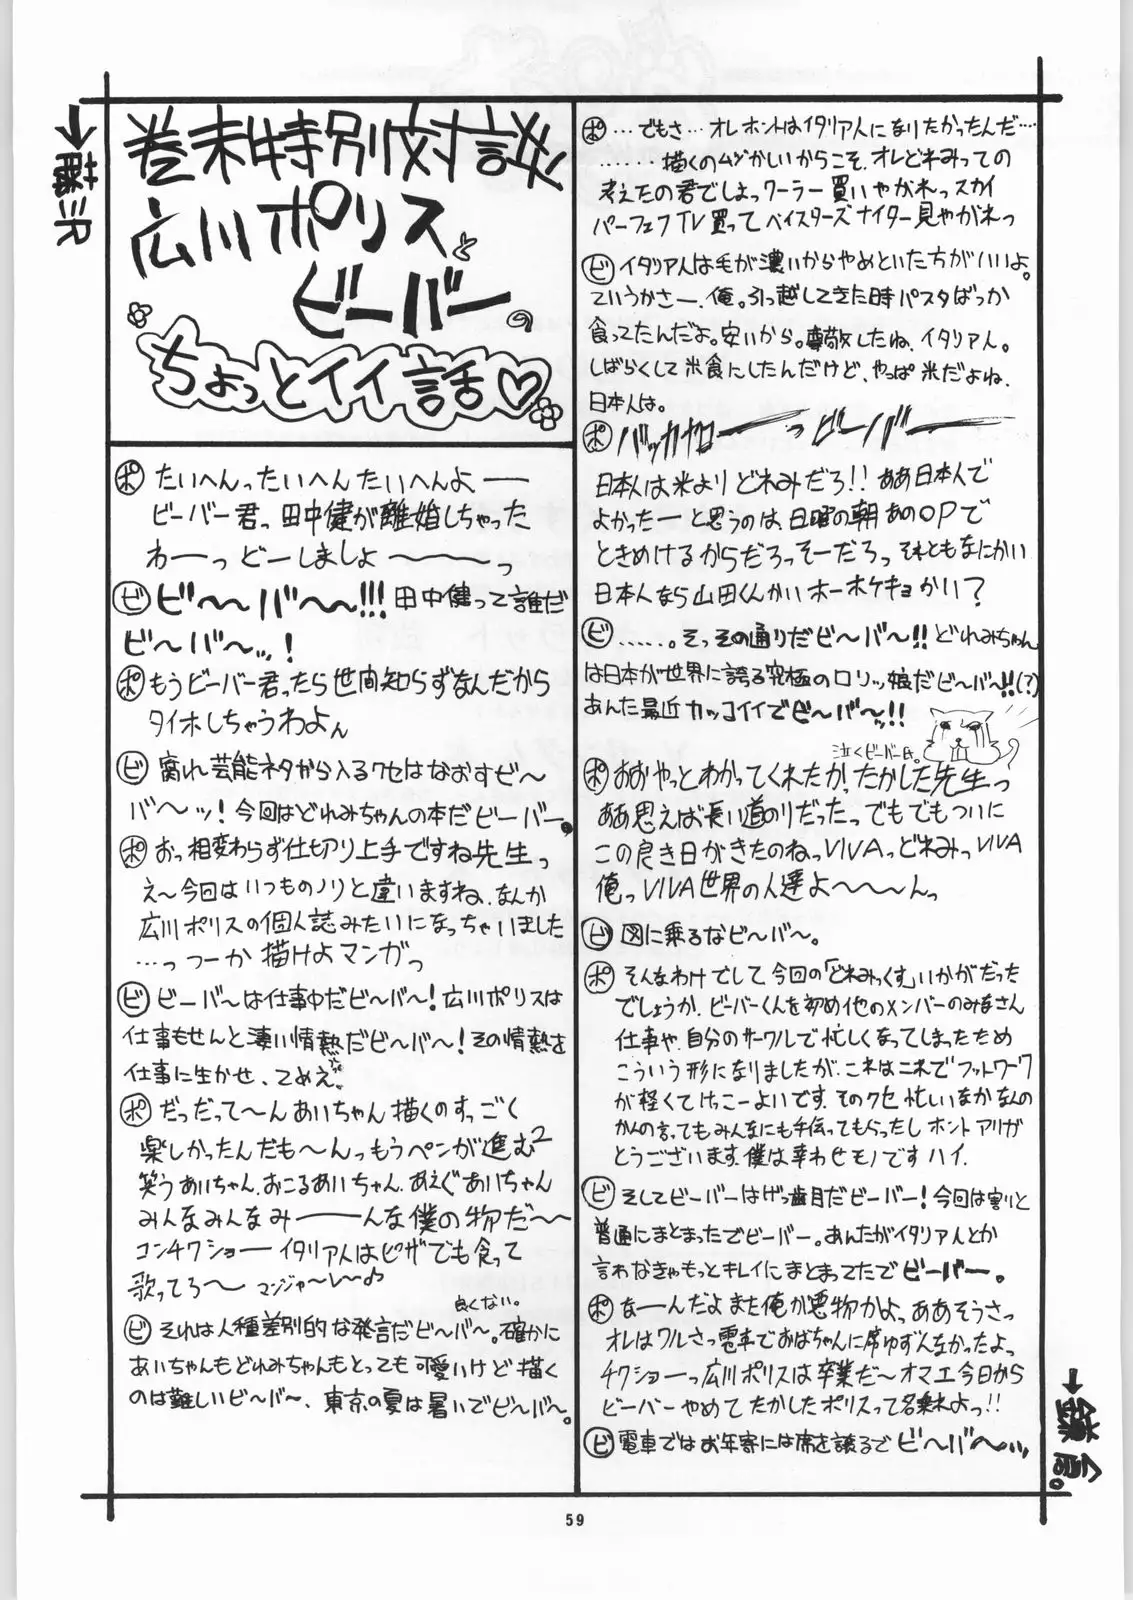 巻末特別対談!
広川ポリスと
ビーバーの
ちょっとイイ話♡
ポ たいへんったいへんたいへんよ、――
ビーバー君っ田中健が離婚しちゃった
わーーっどーしましょ〜〜〜〜っ
ビ ビ〜〜バ〜〜!!!田中健って誰だ
ビ〜バ〜ッ!
ポ もうビーバー君ったら世間知らずなんだから
タイホしちゃうわよん
ビ 腐れ芸能ネタから入るクセはなおすビ〜
バ〜ッ!今回はどれみちゃんの本だビーバー。
ポ おっ相変わらず仕切り上手ですね先生っ
え〜今回はいつものノリと違いますね、なんか
広川ポリスの個人誌みたいになっちゃいました
…っつーか描けよマンガっ
ビ ビーバ〜は仕事中だビ〜バ〜!広川ポリスは
仕事もせんと凄い情熱だビ〜バ〜!その情熱を
仕事に生かせ、てめえ。
ポ だっだって〜んあいちゃん描くのすっごく
楽しかったんだも〜んっもうペンが進む2
笑うあいちゃん、おこるあいちゃん、あえぐあいちゃん
みんなみんなみーーーんな僕の物だ〜〜
コンチクショーイタリア人はピザでも食って
歌ってろ〜マンジャ〜レ〜♪
良くない。
ビ それは人種差別的な発言だビ〜バ〜。確かに
あいちゃんもどれみちゃんもとっても可愛いけど描く
のは難しいビ〜バ〜、東京の夏は暑いでビ〜バ〜。
ポ …でもさ…オレホントはイタリア人になりたかったんだ……
………描くのムズかしいからこそ、オレどれみっての
考えたの君でしょっクーラー買いやがれっスカイ
パーフェクTV買ってベイスターズナイター見やがれっ
ビ イタリア人は毛が濃いからやめといた方がいいよ。
ていうかさー、俺。引っ越してきた時パスタばっか
食ってたんだよ。安いから。尊敬したね、イタリア人。
しばらくして米食にしたんだけど、やっぱ米だよね、
日本人は。
ポ バッカヤローーーっビーバーーー
日本人は米よりどれみだろ!!ああ日本人で
よかったーと思うのは、日曜の朝あのOPで
ときめけるからだろっそーだろっそれともなにかい
日本人なら山田くんかいホーホケキョかい?
ビ ……。そっその通りだビ〜バ〜!!どれみちゃん
は日本が世界に誇る究極のロリッ娘だビ〜バ〜!!(?)
あんた最近カッコイイでビ〜バ〜ッ!!
泣くビーバー氏。
ポ おおやっとわかってくれたか!たかした先生っ
ああ思えば長い道のりだったっでもでもついに
この良き日がきたのねっVIVAっどれみっVIVA
俺っVIVA世界の人達よ〜〜〜んっ
ビ 図に乗るなビ〜バ〜。
ポ そんなわけでして今回の「どれみっくす」いかがだった
でしょうか、ビーバーくんを初め他のメンバーのみなさん
仕事や、自分のサークルで忙しくなってしまったため
こういう形になりましたが、これはこれでフットワーク
が軽くてけっこーよいです。そのクセ忙しいなかなんの
かんの言ってもみんなにも手伝ってもらったしホントアリガ
とうございます。僕は幸わせモノですハイ。
ビ そしてビーバーはげっ歯目だビーバー!今回は割りと
普通にまとまったでビーバー。あんたがイタリア人とか
言わなきゃもっとキレイにまとまってたでビーバー。
ポ なーーんだよまた俺が悪物かよっああそうさっ
オレはワルさっ電車でおばちゃんに席ゆずんなかったよっ
チクショーっ広川ポリスは卒業だ〜オマエ今日から
ビーバーやめてたかしたポリスって名乗れよっ!!
ビ 電車ではお年寄には席を譲るでビ〜バ〜…、
59